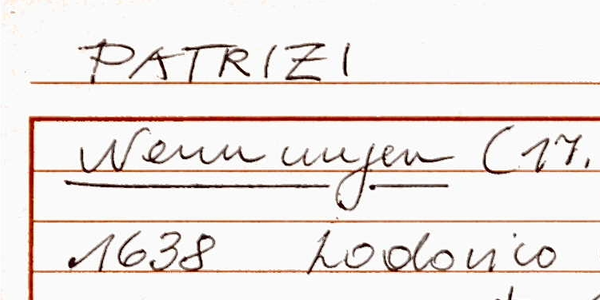 PATRIZI
Nennungen (17.
1638 Lodovico